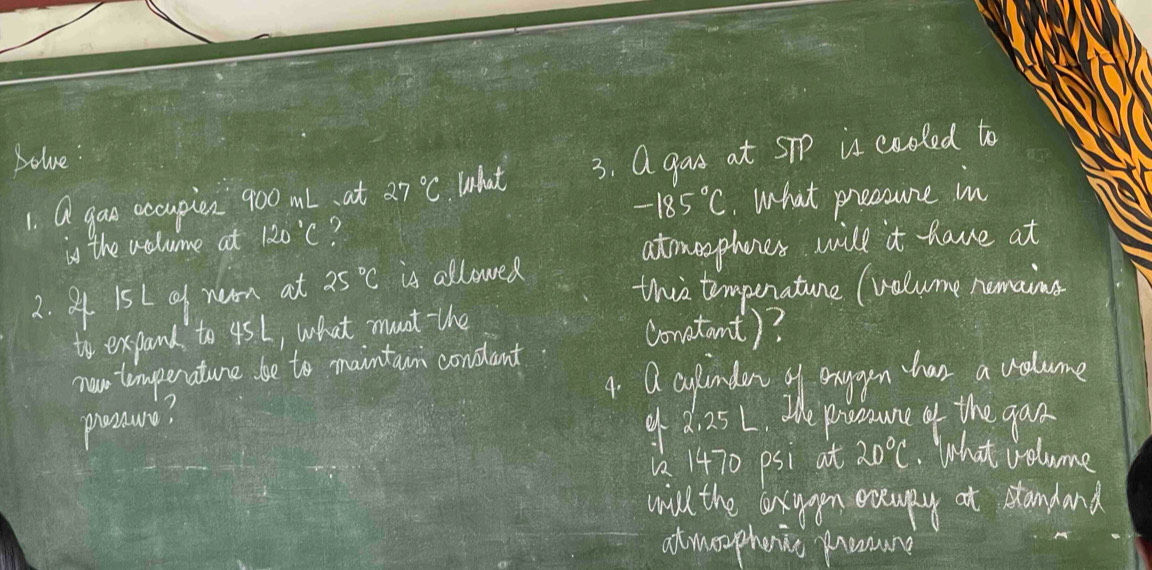 Solve:
1. A gas occupies 900 mL at 27 °C. What
is the volume at 120 °C?
2. If 15 L of neon at 25 °C is allowed
to expand to 45 L, what must the
new temperature be to maintain constant
pressure?
3. A gas at STP is cooled to
-185 °C. What pressure in
atmospheres will it have at
this temperature (volume remains
constant)?
4. A cylinder of oxygen has a volume
of 2.25 L. The pressure of the gas
is 1470 psi at 20 °C. What volume
will the oxygen occupy at standard
atmospheric pressure